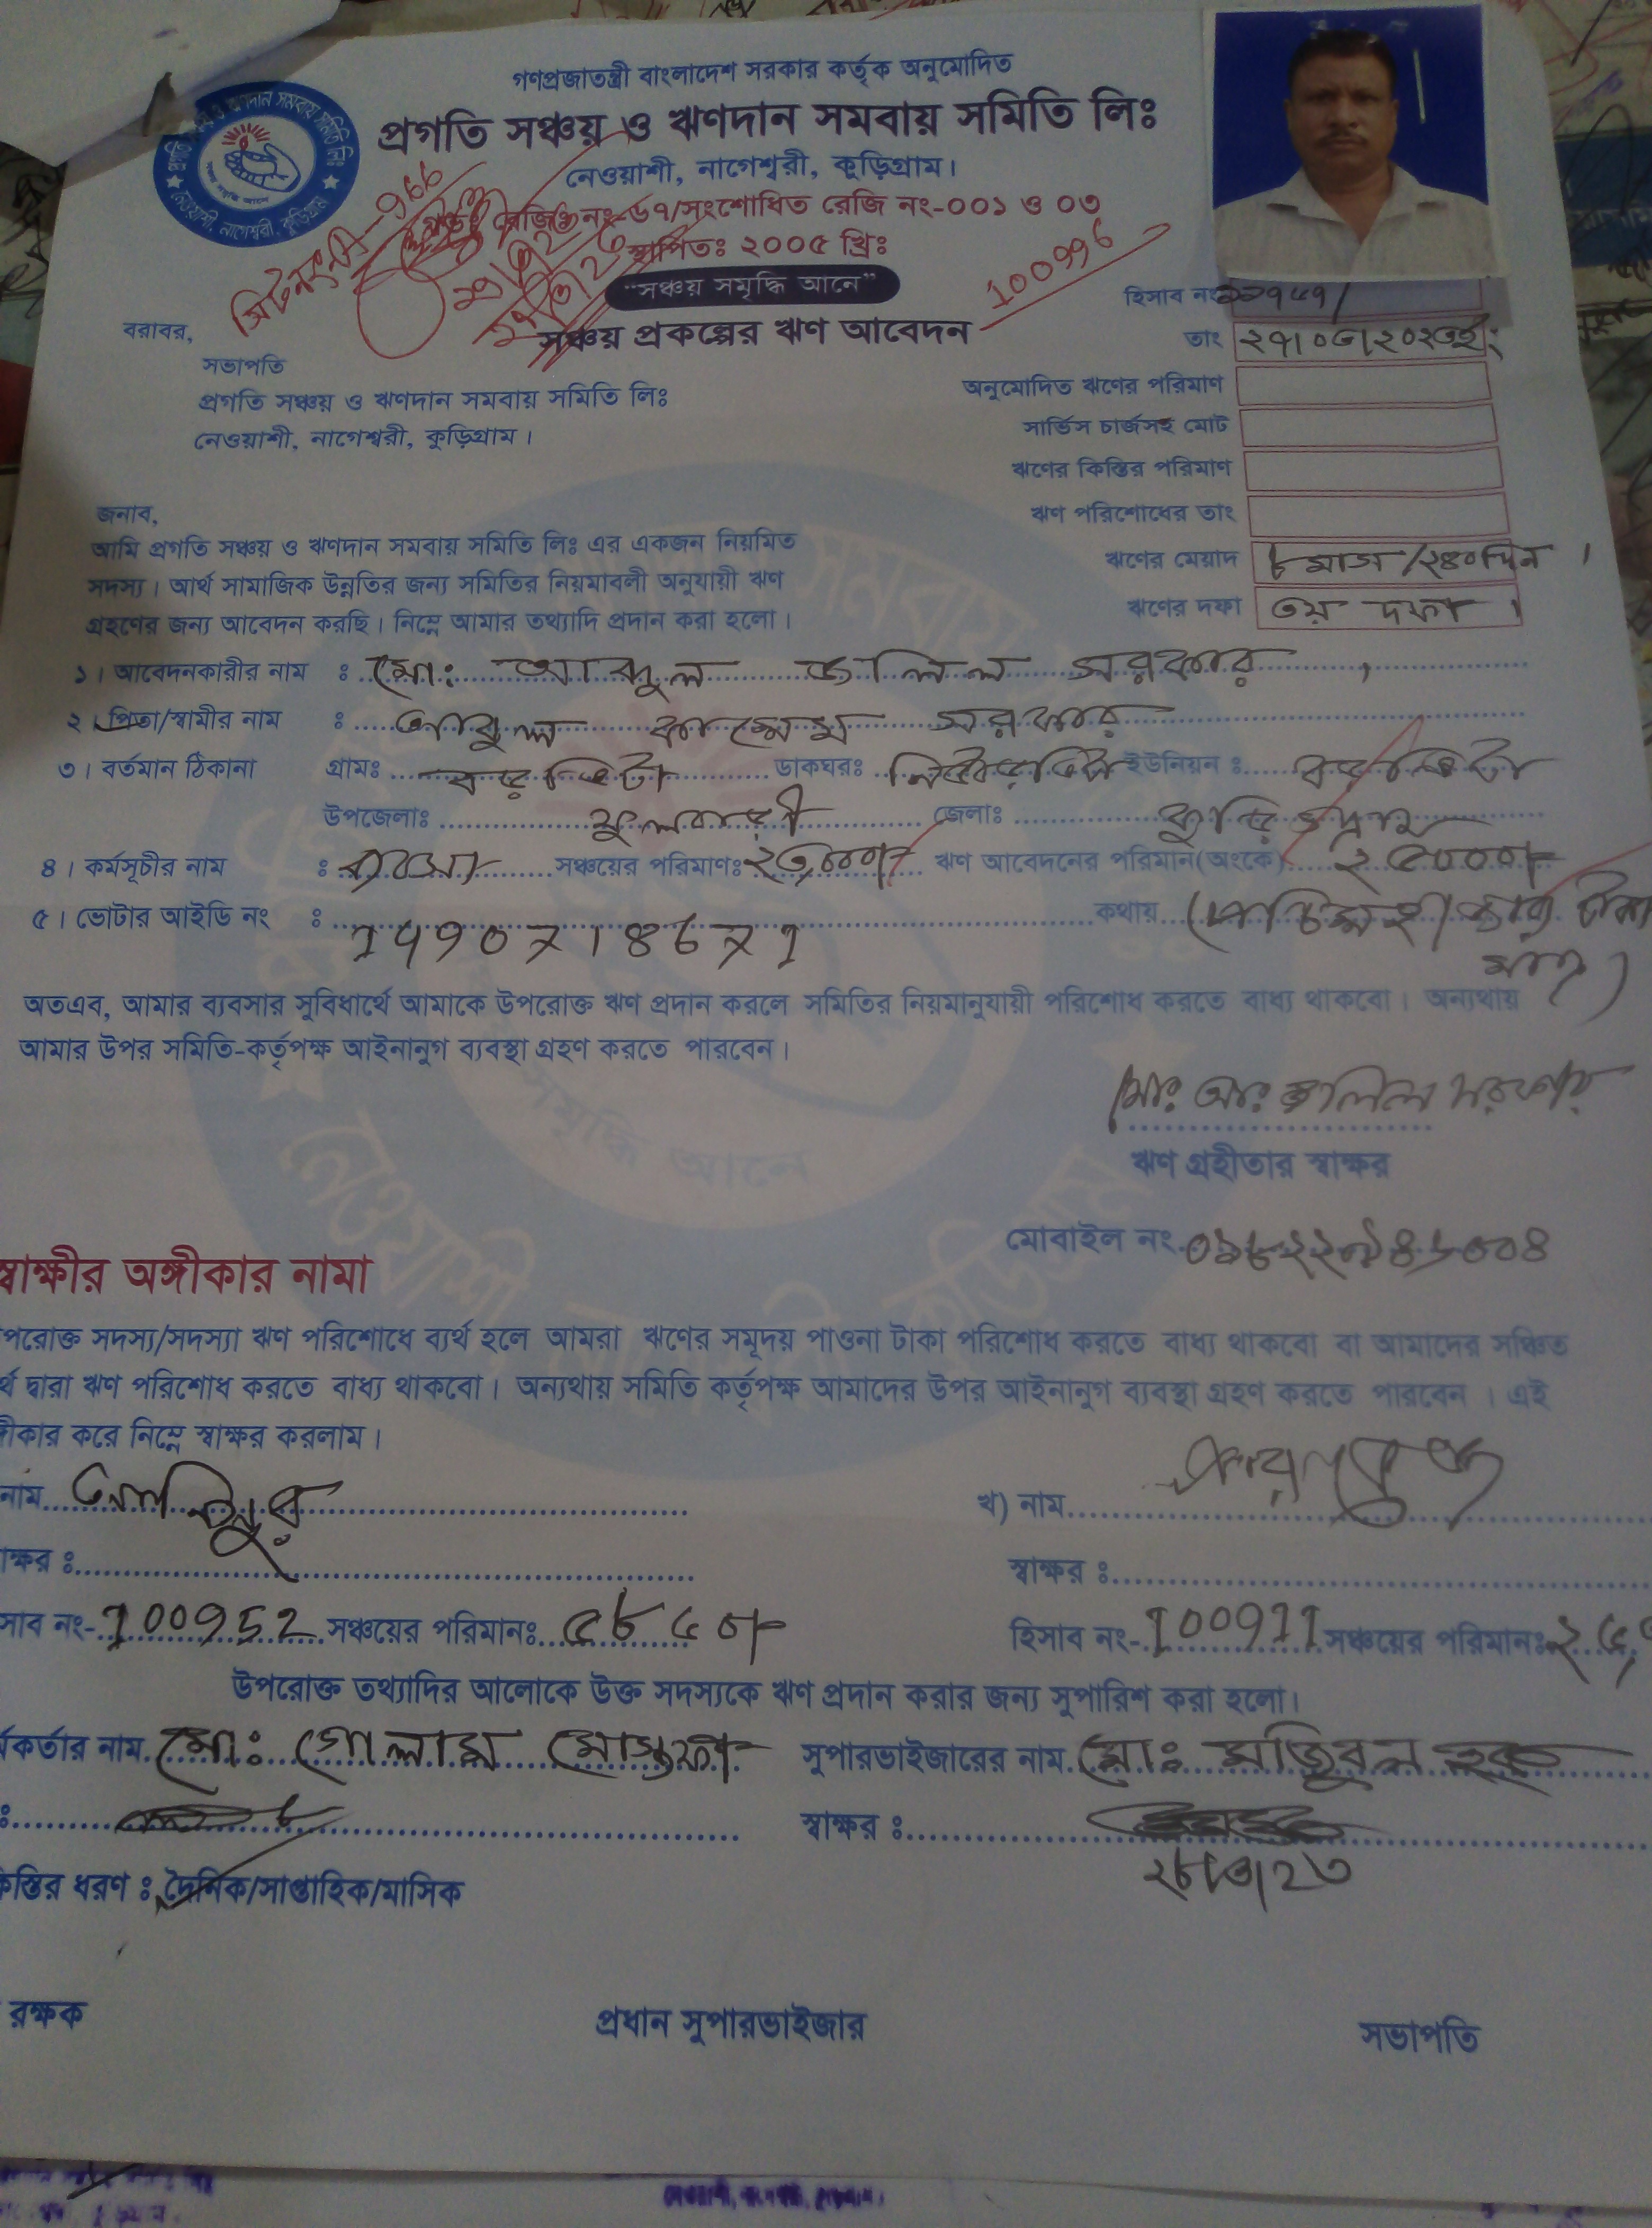 গণপ্রজাতন্ত্রী বাংলাদেশ সরকার কর্তৃক অনুমোদিত
প্রগতি সঞ্চয় ও ঋণদান সমবায় সমিতি লিঃ
নেওয়াশী, নাগেশ্বরী, কুড়িগ্রাম।
রেজিঃ নং-৬৭/সংশোধিত রেজি নং-০০১ ও ০৩
স্থাপিতঃ ২০০৫ খ্রিঃ
"সঞ্চয় সমৃদ্ধি আনে"
100996
সঞ্চয় প্রকল্পের ঋণ আবেদন
হিসাব নং
তাং ২৭/০৩/২০২৩ইং
বরাবর,
সভাপতি
প্রগতি সঞ্চয় ও ঋণদান সমবায় সমিতি লিঃ
নেওয়াশী, নাগেশ্বরী, কুড়িগ্রাম।
অনুমোদিত ঋণের পরিমাণ
সার্ভিস চার্জসহ মোট
ঋণের কিস্তির পরিমাণ
ঋণ পরিশোধের তাং
ঋণের মেয়াদ ৮ মাস /২৪০দিন।
ঋণের দফা ৩য় দফা।
জনাব,
আমি প্রগতি সঞ্চয় ও ঋণদান সমবায় সমিতি লিঃ এর একজন নিয়মিত
সদস্য। আর্থ সামাজিক উন্নতির জন্য সমিতির নিয়মাবলী অনুযায়ী ঋণ
গ্রহণের জন্য আবেদন করছি। নিম্নে আমার তথ্যাদি প্রদান করা হলো।
১। আবেদনকারীর নাম ঃ মোঃ আব্দুল জলিল সরকার
২। পিতা/স্বামীর নাম ঃ আবুল কাশেম সরকার
৩। বর্তমান ঠিকানা গ্রামঃ বড়ভিটা ডাকঘরঃ ইউনিয়ন ঃ বড়ভিটা
উপজেলাঃ ফুলবাড়ী জেলাঃ কুড়িগ্রাম
৪। কর্মসূচীর নাম ঃ ব্যবসা সঞ্চয়ের পরিমাণঃ ২৩,০০০/- ঋণ আবেদনের পরিমান(অংকে) ২৫০০০/-
৫। ভোটার আইডি নং ঃ কথায় (পঁচিশ হাজার টাকা
মাত্র)
অতএব, আমার ব্যবসার সুবিধার্থে আমাকে উপরোক্ত ঋণ প্রদান করলে সমিতির নিয়মানুযায়ী পরিশোধ করতে বাধ্য থাকবো। অন্যথায়
আমার উপর সমিতি-কর্তৃপক্ষ আইনানুগ ব্যবস্থা গ্রহণ করতে পারবেন।
মোঃ আঃ জলিল সরকার
ঋণ গ্রহীতার স্বাক্ষর
মোবাইল নং
স্বাক্ষীর অঙ্গীকার নামা
পরোক্ত সদস্য/সদস্যা ঋণ পরিশোধে ব্যর্থ হলে আমরা ঋণের সমূদয় পাওনা টাকা পরিশোধ করতে বাধ্য থাকবো বা আমাদের সঞ্চিত
র্থ দ্বারা ঋণ পরিশোধ করতে বাধ্য থাকবো। অন্যথায় সমিতি কর্তৃপক্ষ আমাদের উপর আইনানুগ ব্যবস্থা গ্রহণ করতে পারবেন। এই
ঙ্গীকার করে নিম্নে স্বাক্ষর করলাম।
নাম
খ) নাম
াক্ষর ঃ
স্বাক্ষর ঃ
সাব নং- 100952 সঞ্চয়ের পরিমানঃ ৫৮৫০/-
হিসাব নং- 100911 সঞ্চয়ের পরিমানঃ
উপরোক্ত তথ্যাদির আলোকে উক্ত সদস্যকে ঋণ প্রদান করার জন্য সুপারিশ করা হলো।
র্মকর্তার নাম মোঃ গোলাম মোস্তফা সুপারভাইজারের নাম মোঃ মজিবুল হক
স্বাক্ষর ঃ
২৮/৩/২৩
কিস্তির ধরণ ঃ দৈনিক/সাপ্তাহিক/মাসিক
রক্ষক
প্রধান সুপারভাইজার
সভাপতি